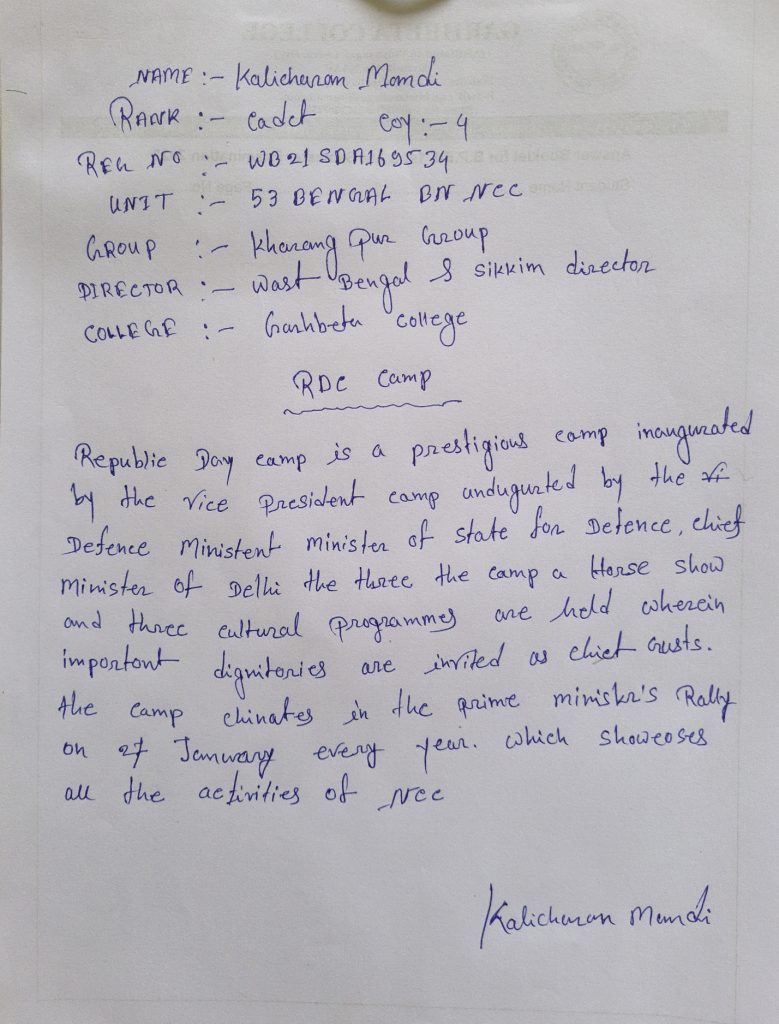 NAME :- Kalicharan Mandi
RANK :- Cadet COY :- 4
REG NO :- WB21SDA169534
UNIT :- 53 BENGAL BN NCC
GROUP :- Kharang pur Group
DIRECTOR :- Wast Bengal & Sikkim director
COLLEGE :- Garhbeta College
RDC Camp
Republic Day camp is a prestigious camp inaugurated
by the Vice President camp undugurted by the vi
Defence Ministent minister of state for Defence, chief
Minister of Delhi the three the camp a Horse show
and three cultural programmes are held wherein
important dignitories are invited as chief Gusts.
the camp chinates in the prime miniskr's Rally
on 27 January every year. which showcases
all the activities of NCC
Kalicharan Mandi